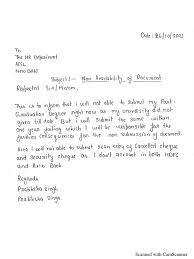 Date: 26/10/2021
To
The HR Department
New Delhi
Subject:- Non Availability of Document
Respected Sir/Mam,
This is to inform that I will not able to submit my Post-
Graduation Degree right now as my university did not
given till date. But I will submit the same within
one year failing which I will be responsible for the
consequences for the non submission of document.
Also I will not able to submit scan copy of Cancelled cheque
and security cheque as I don't account in both HDFC
and Axis Bank.
Regards
Pratiksha Singh
Pratiksha Singh
Scanned with CamScanner